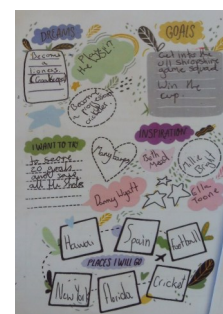 DREAMS
GOALS
Become
a
Lioness
(Goalkeeper)
Player of
the
Become a
cricketer
Get into the
U11 Shropshire
game squad
Win the
cup.
I WANT TO TRY
to score
20 goals
and save
all the shots
INSPIRATION
Mary Earps
Beth
Mead
Danny Wyatt
Ella
Toone
Hawaii
Spain
football
PLACES I WILL GO
New York
Florida
Cricket